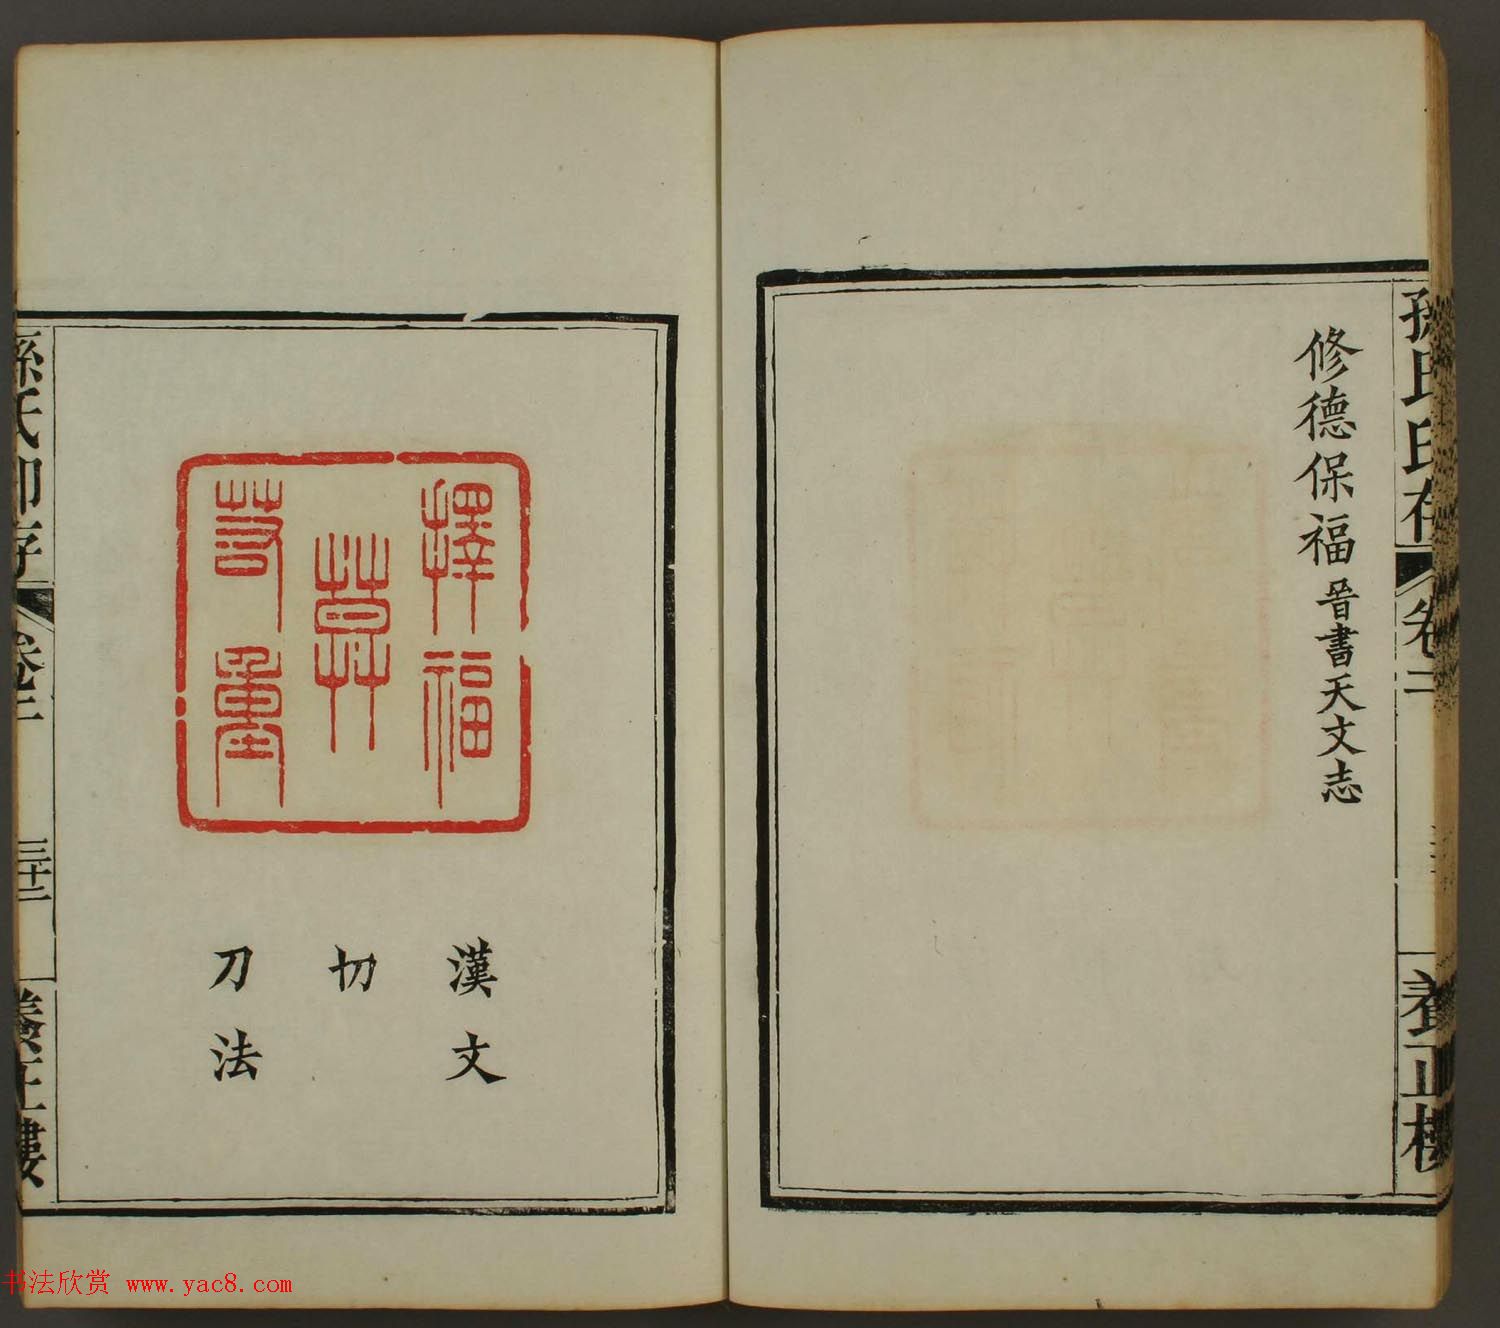 孫氏印存 卷二 養正樓
修德保福 晉書天文志
擇福
莫
若重
漢文
切
刀法
孫氏印存 卷二 三十二 養正樓
书法欣赏 www.yac8.com